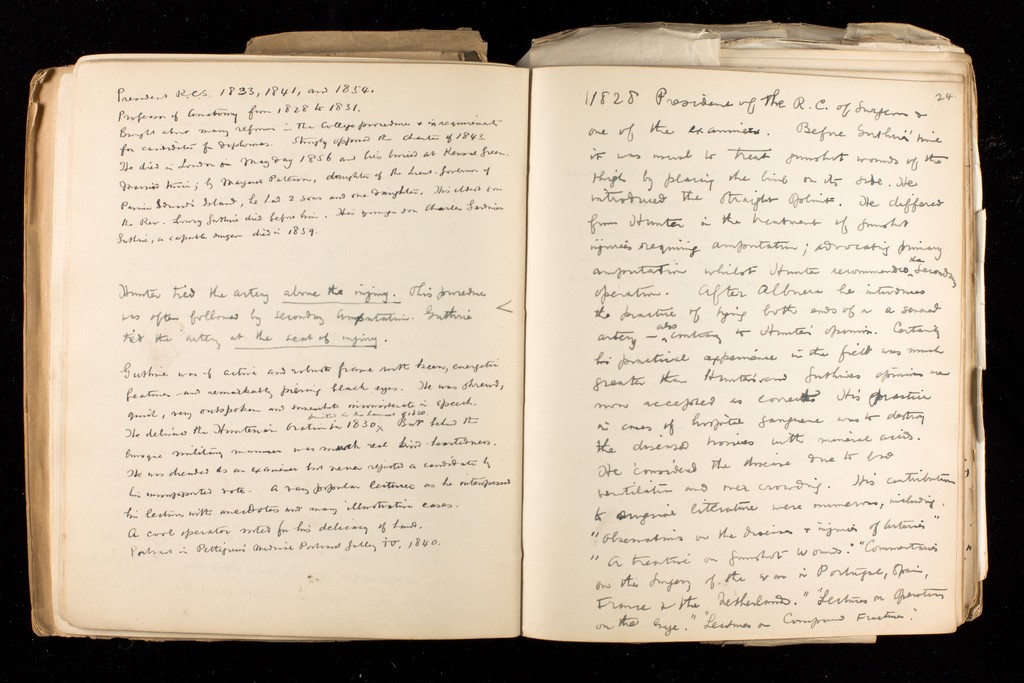 President R.C.S. 1833, 1841, and 1854.
Professor of Anatomy from 1828 to 1831.
Brought about many reforms in the College procedures & in requirements
for candidates for diplomas. Strongly opposed the charter of 1843.
He died in London on May Day 1856 and lies buried at Kensal Green.
Married twice; by Margaret Patterson, daughter of the Lieut. Governor of
Prince Edward's Island, he had 2 sons and one daughter. His eldest son
the Rev. Lowry Guthrie died before him. His younger son Charles Gardiner
Guthrie, a capable surgeon died in 1859.
Hunter tied the artery above the injury. This procedure
was often followed by secondary amputation. Guthrie
tied the artery at the seat of injury.
<
Guthrie was of active and robust frame with keen, energetic
features and remarkably piercing black eyes. He was shrewd,
quick, very outspoken and somewhat inconsiderate in speech.
printed in the Lancet
He delivered the Hunterian Oration in 1830 x But behind the
brusque military manner was much real kind-heartedness.
He was dreaded as an examiner but never rejected a candidate by
his unsupported vote. A very popular lecturer as he interspersed
his lectures with anecdotes and many illustrative cases.
A cool operator noted for his delicacy of hand.
Portrait in Pettigrew's Medical Portrait Gallery IV, 1840.
24.
1828 President of the R.C. of Surgeons &
one of the examiners. Before Guthrie's time
it was usual to treat gunshot wounds of the
thigh by placing the limb on its side. He
introduced the straight splint. He differed
from Hunter in the treatment of gunshot
injuries requiring amputation; advocating primary
amputation whilst Hunter recommended the secondary
operation. After Albuera he introduced
the practice of tying both ends of a
artery — also contrary to Hunter's opinion. Certainly
his practical experience in the field was much
greater than Hunter's and Guthrie's opinions are
now accepted as correct. His practice
in cases of hospital gangrene was to destroy
the diseased tissues with mineral acids.
He considered the disease due to bad
ventilation and over crowding. His contributions
to surgical literature were numerous, including
"Observations on the diseases & injuries of arteries"
"A treatise on Gunshot Wounds." "Commentaries
on the Surgery of the war in Portugal, Spain,
France & the Netherlands." "Lectures on Operations
on the Eye." "Lectures on Compound Fractures."